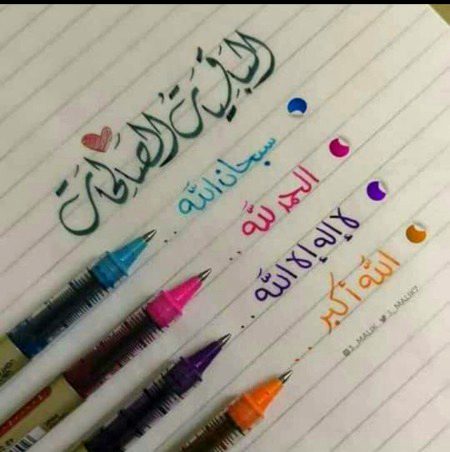 الباقيات الصالحات
سبحان الله
الحمد لله
لا إله إلا الله
الله أكبر
@S_MALIK S_MALIK7